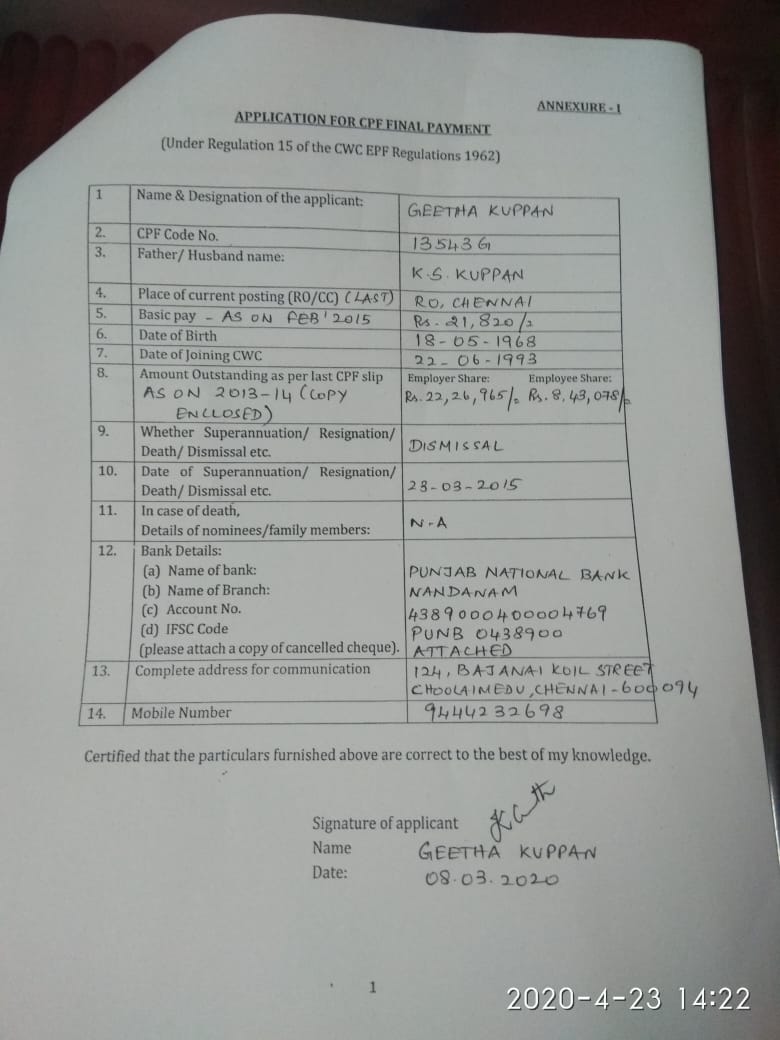 ANNEXURE - I
APPLICATION FOR CPF FINAL PAYMENT
(Under Regulation 15 of the CWC EPF Regulations 1962)
1 Name & Designation of the applicant: GEETHA KUPPAN
2. CPF Code No. 13543G
3. Father/ Husband name: K.S. KUPPAN
4. Place of current posting (RO/CC) (LAST) RO, CHENNAI
5. Basic pay - AS ON FEB' 2015 Rs. 21,820/=
6. Date of Birth 18-05-1968
7. Date of Joining CWC 22-06-1993
8. Amount Outstanding as per last CPF slip Employer Share: Employee Share:
AS ON 2013-14 (COPY Rs. 22,26,965/= Rs. 8,43,078/=
ENCLOSED)
9. Whether Superannuation/ Resignation/
Death/ Dismissal etc. DISMISSAL
10. Date of Superannuation/ Resignation/
Death/ Dismissal etc. 23-03-2015
11. In case of death,
Details of nominees/family members: N-A
12. Bank Details:
(a) Name of bank: PUNJAB NATIONAL BANK
(b) Name of Branch: NANDANAM
(c) Account No. 4389000400004769
(d) IFSC Code PUNB 0438900
(please attach a copy of cancelled cheque). ATTACHED
13. Complete address for communication 124, BAJANAI KOIL STREET
CHOOLAIMEDU, CHENNAI-600094
14. Mobile Number 9444232698
Certified that the particulars furnished above are correct to the best of my knowledge.
Signature of applicant
Name GEETHA KUPPAN
Date: 08.03.2020
1
2020-4-23 14:22